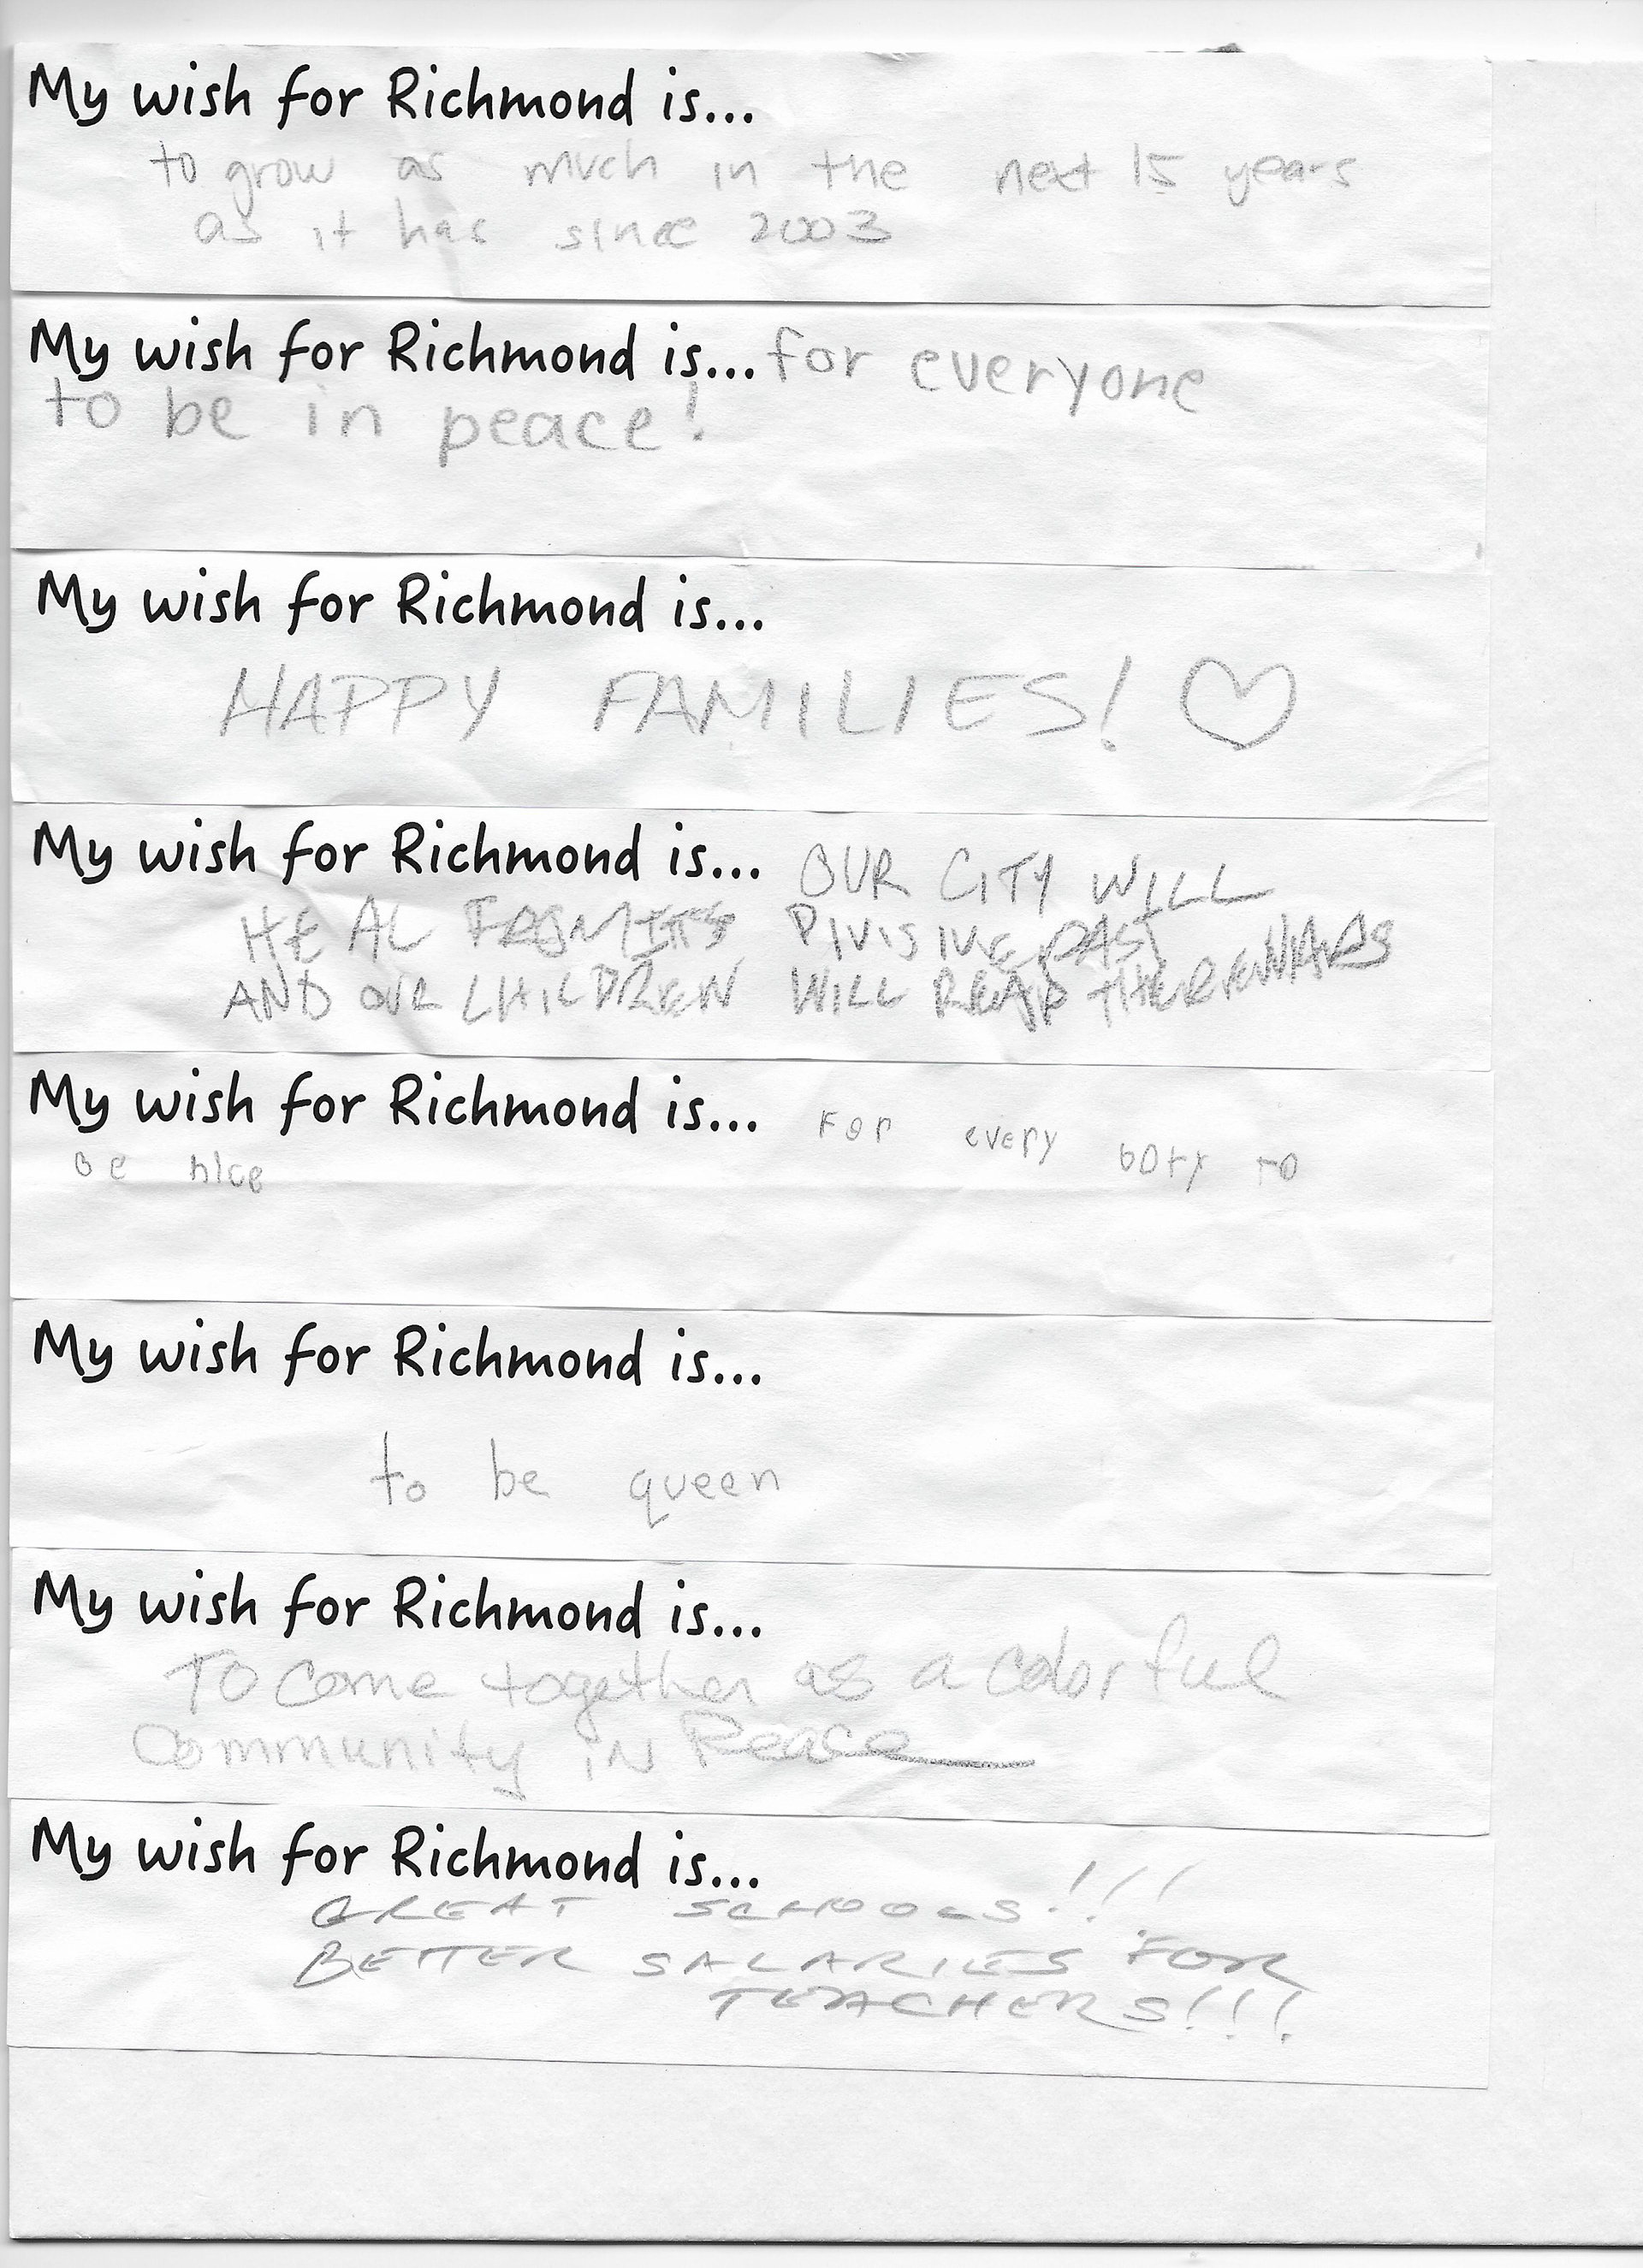 My wish for Richmond is...
to grow as much in the next 15 years
as it has since 2003
My wish for Richmond is... for everyone
to be in peace!
My wish for Richmond is...
HAPPY FAMILIES!
My wish for Richmond is... OUR CITY WILL
HEAL FROM ITS DIVISIVE PAST
AND OUR CHILDREN WILL REAP THE REWARDS
My wish for Richmond is... For every boty to
be nice
My wish for Richmond is...
to be queen
My wish for Richmond is...
To come together as a colorful
Community in Peace
My wish for Richmond is...
GREAT SCHOOLS!!!
BETTER SALARIES FOR
TEACHERS!!!